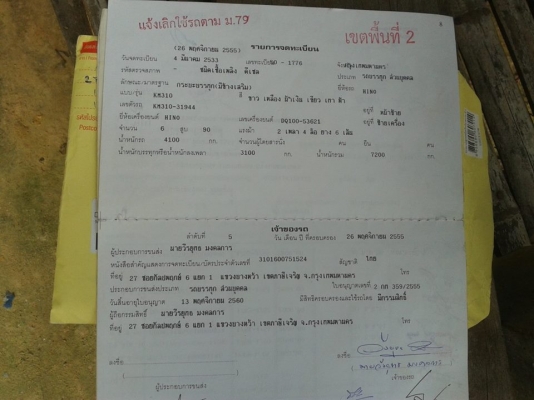 แจ้งเลิกใช้รถตาม ม.79
เขตพื้นที่ 2
(26 พฤศจิกายน 2555) รายการจดทะเบียน
วันจดทะเบียน 4 มีนาคม 2533 เลขทะเบียน 90 - 1776 จังหวัด กรุงเทพมหานคร
ชนิดเชื้อเพลิง ดีเซล ประเภท รถบรรทุก ส่วนบุคคล
ลักษณะ/มาตรฐาน กระบะบรรทุก(มีข้างเสริม) ยี่ห้อรถ HINO
แบบ/รุ่น KM310 สี ขาว เหลือง น้ำเงิน เขียว เทา ดำ
เลขตัวรถ KM310-31944 อยู่ที่ หน้าซ้าย
ยี่ห้อเครื่องยนต์ HINO เลขเครื่องยนต์ DQ100-53621 อยู่ที่ ซ้ายเครื่อง
จำนวน 6 สูบ 90 แรงม้า 2 เพลา 4 ล้อ ยาง 6 เส้น
น้ำหนักรถ 4100 กก. จำนวนผู้โดยสารนั่ง คน ยืน คน
น้ำหนักบรรทุกหรือน้ำหนักลงเพลา 3100 กก. น้ำหนักรวม 7200 กก.
เจ้าของรถ
ลำดับที่ 5 วัน เดือน ปี ที่ครอบครอง 26 พฤศจิกายน 2555
ผู้ประกอบการขนส่ง นายวีรยุทธ มงคลการ
3101600751524 สัญชาติ ไทย
ที่อยู่ 27 ซอยกัลปพฤกษ์ 6 แยก 1 แขวงบางหว้า เขตภาษีเจริญ จ.กรุงเทพมหานคร โทร
ประกอบการขนส่งประเภท รถบรรทุก ส่วนบุคคล ใบอนุญาตเลขที่ 2 กท 359/2555
วันสิ้นอายุใบอนุญาต 13 พฤศจิกายน 2560 มีสิทธิครอบครองและใช้รถโดย มีกรรมสิทธิ์
ผู้ถือกรรมสิทธิ์ นายวีรยุทธ มงคลการ
ที่อยู่ 27 ซอยกัลปพฤกษ์ 6 แยก 1 แขวงบางหว้า เขตภาษีเจริญ จ.กรุงเทพมหานคร โทร
ลงชื่อ
ลงชื่อ
ผู้ประกอบการขนส่ง
เจ้าของรถ